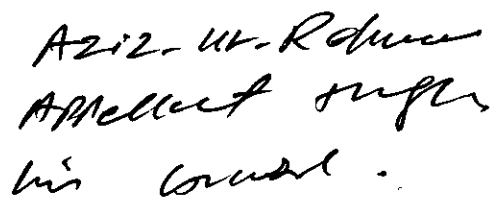 Aziz-ur-Rehman
Appellant through
his counsel.